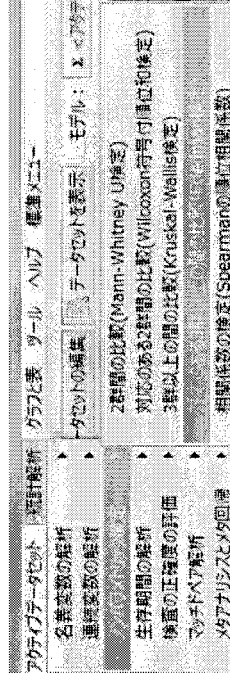 アクティブデータセット 統計解析 グラフと表 ツール ヘルプ 標準メニュー
データセットの編集 データセットを表示 モデル: Σ <アクテ
名義変数の解析
連続変数の解析
生存期間の解析
検査の正確度の評価
マッチドペア解析
メタアナリシスとメタ回帰
2群間の比較(Mann-Whitney U検定)
対応のある2群間の比較(Wilcoxon符号付順位和検定)
3群以上の間の比較(Kruskal-Wallis検定)
相関係数の検定(Spearmanの順位相関係数)